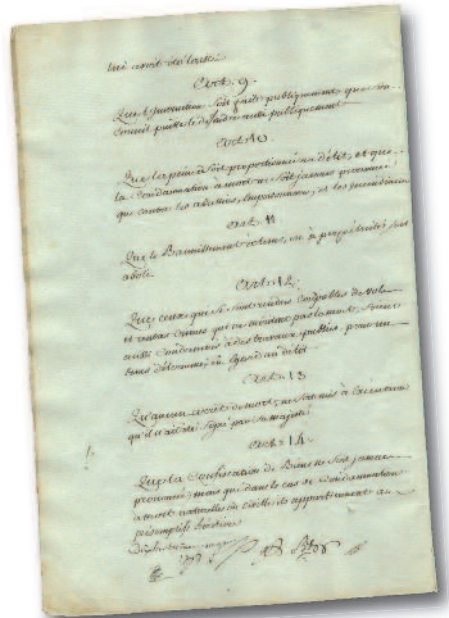 lui avoit été laissé
Art. 9.
Que l'Instruction soit faite publiquement, que son
Conseil puisse le défendre aussi publiquement
Art. 10.
Que la peine soit proportionnée au délit, et que
la Condamnation à mort ne soit jamais prononcée
que contre les assassins, Empoisonneurs, et les Incendiaires
Art. 11
Que le Bannissement à tems, ou à perpétuité soit
aboli
Art. 12.
Que ceux qui se sont rendus Coupables de vols
et autres Crimes qui ne méritent pas la mort, soient
Condamnés à des travaux publics, pour un
tems déterminé, eu Egard au délit
Art. 13
Qu'aucun arrêt de mort, ne soit mis à l'exécution
qu'il n'ait été signé par sa majesté
Art. 14.
Que la Confiscation de Biens ne soit jamais
prononcée, mais que dans le cas de Condamnation
à mort naturelle ou civille ils appartiennent au
présomptifs héritiers